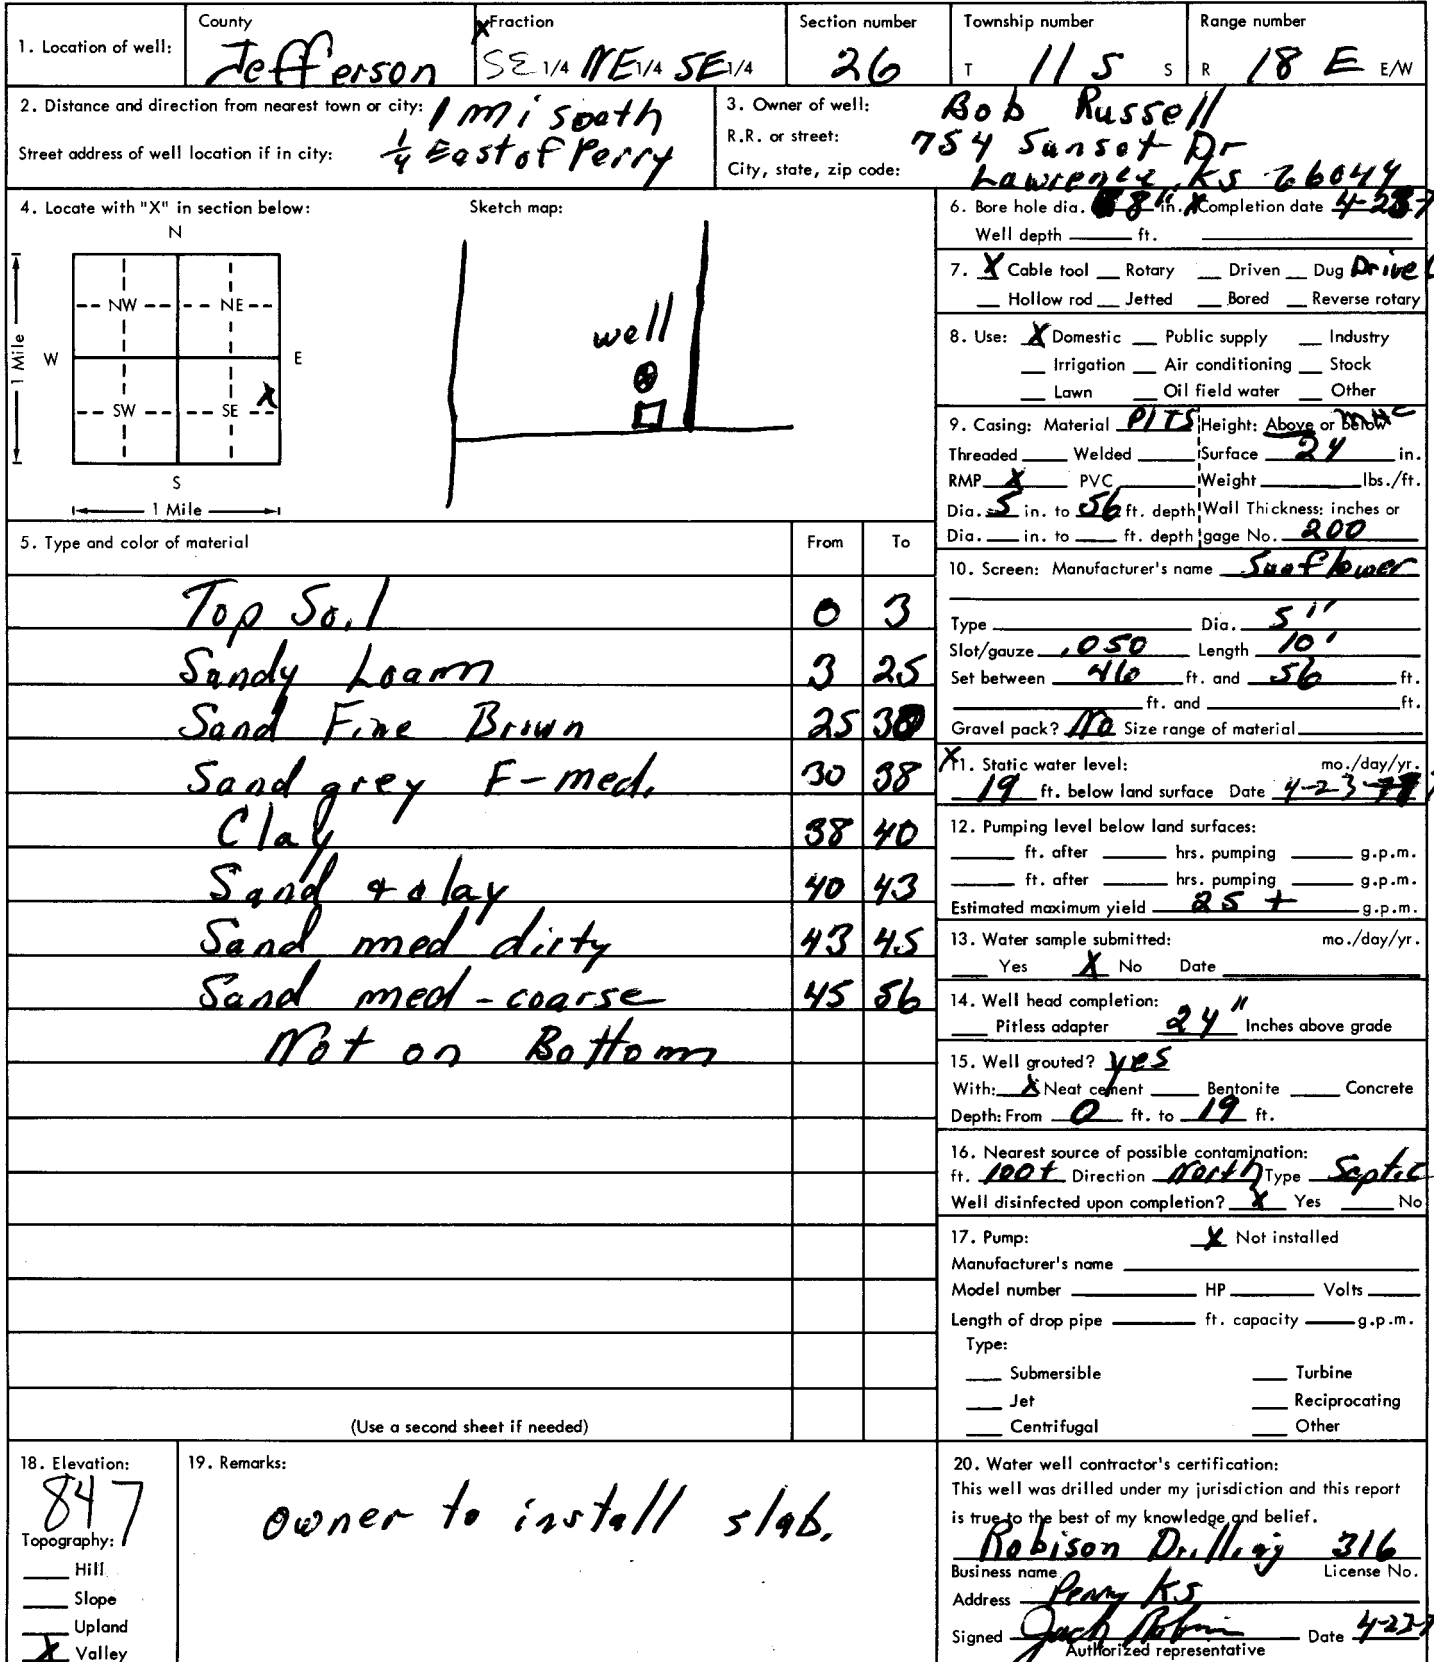 1. Location of well: County Jefferson Fraction SE 1/4 NE 1/4 SE 1/4 Section number 26 Township number T 11 S S Range number R 18 E E/W
2. Distance and direction from nearest town or city: 1 mi south
Street address of well location if in city: 1/4 East of Perry
3. Owner of well: Bob Russell
R.R. or street: 754 Sunset Dr
City, state, zip code: Lawrence, Ks 66044
4. Locate with "X" in section below:
N
NW NE
W E
SW SE X
S
1 Mile
1 Mile
Sketch map:
well
5. Type and color of material From To
Top Soil 0 3
Sandy Loam 3 25
Sand Fine Brown 25 30
Sand grey F-med. 30 38
Clay 38 40
Sand & clay 40 43
Sand med dirty 43 45
Sand med-coarse 45 56
Not on Bottom
(Use a second sheet if needed)
6. Bore hole dia. 8" in. X Completion date
Well depth ft.
7. X Cable tool Rotary Driven Dug Drive
Hollow rod Jetted Bored Reverse rotary
8. Use: X Domestic Public supply Industry
Irrigation Air conditioning Stock
Lawn Oil field water Other
9. Casing: Material Height: Above or below
Threaded Welded Surface 24 in.
RMP X PVC Weight lbs./ft.
Dia. 5 in. to 56 ft. depth Wall Thickness: inches or
Dia. in. to ft. depth gage No. 200
10. Screen: Manufacturer's name Sunflower
Type Dia. 5"
Slot/gauze .050 Length 10'
Set between 46 ft. and 56 ft.
ft. and ft.
Gravel pack? No Size range of material
X 11. Static water level: mo./day/yr.
19 ft. below land surface Date 4-23-
12. Pumping level below land surfaces:
ft. after hrs. pumping g.p.m.
ft. after hrs. pumping g.p.m.
Estimated maximum yield 25 + g.p.m.
13. Water sample submitted: mo./day/yr.
Yes X No Date
14. Well head completion:
Pitless adapter 24" Inches above grade
15. Well grouted? yes
With: X Neat cement Bentonite Concrete
Depth: From 0 ft. to 19 ft.
16. Nearest source of possible contamination:
ft. 100+ Direction North Type Septic
Well disinfected upon completion? X Yes No
17. Pump: X Not installed
Manufacturer's name
Model number HP Volts
Length of drop pipe ft. capacity g.p.m.
Type:
Submersible Turbine
Jet Reciprocating
Centrifugal Other
18. Elevation:
847
Topography:
Hill
Slope
Upland
X Valley
19. Remarks:
owner to install slab.
20. Water well contractor's certification:
This well was drilled under my jurisdiction and this report
is true to the best of my knowledge and belief.
Robison Drilling 316
Business name License No.
Address Perry Ks
Signed Jack Robison Date 4-23-
Authorized representative